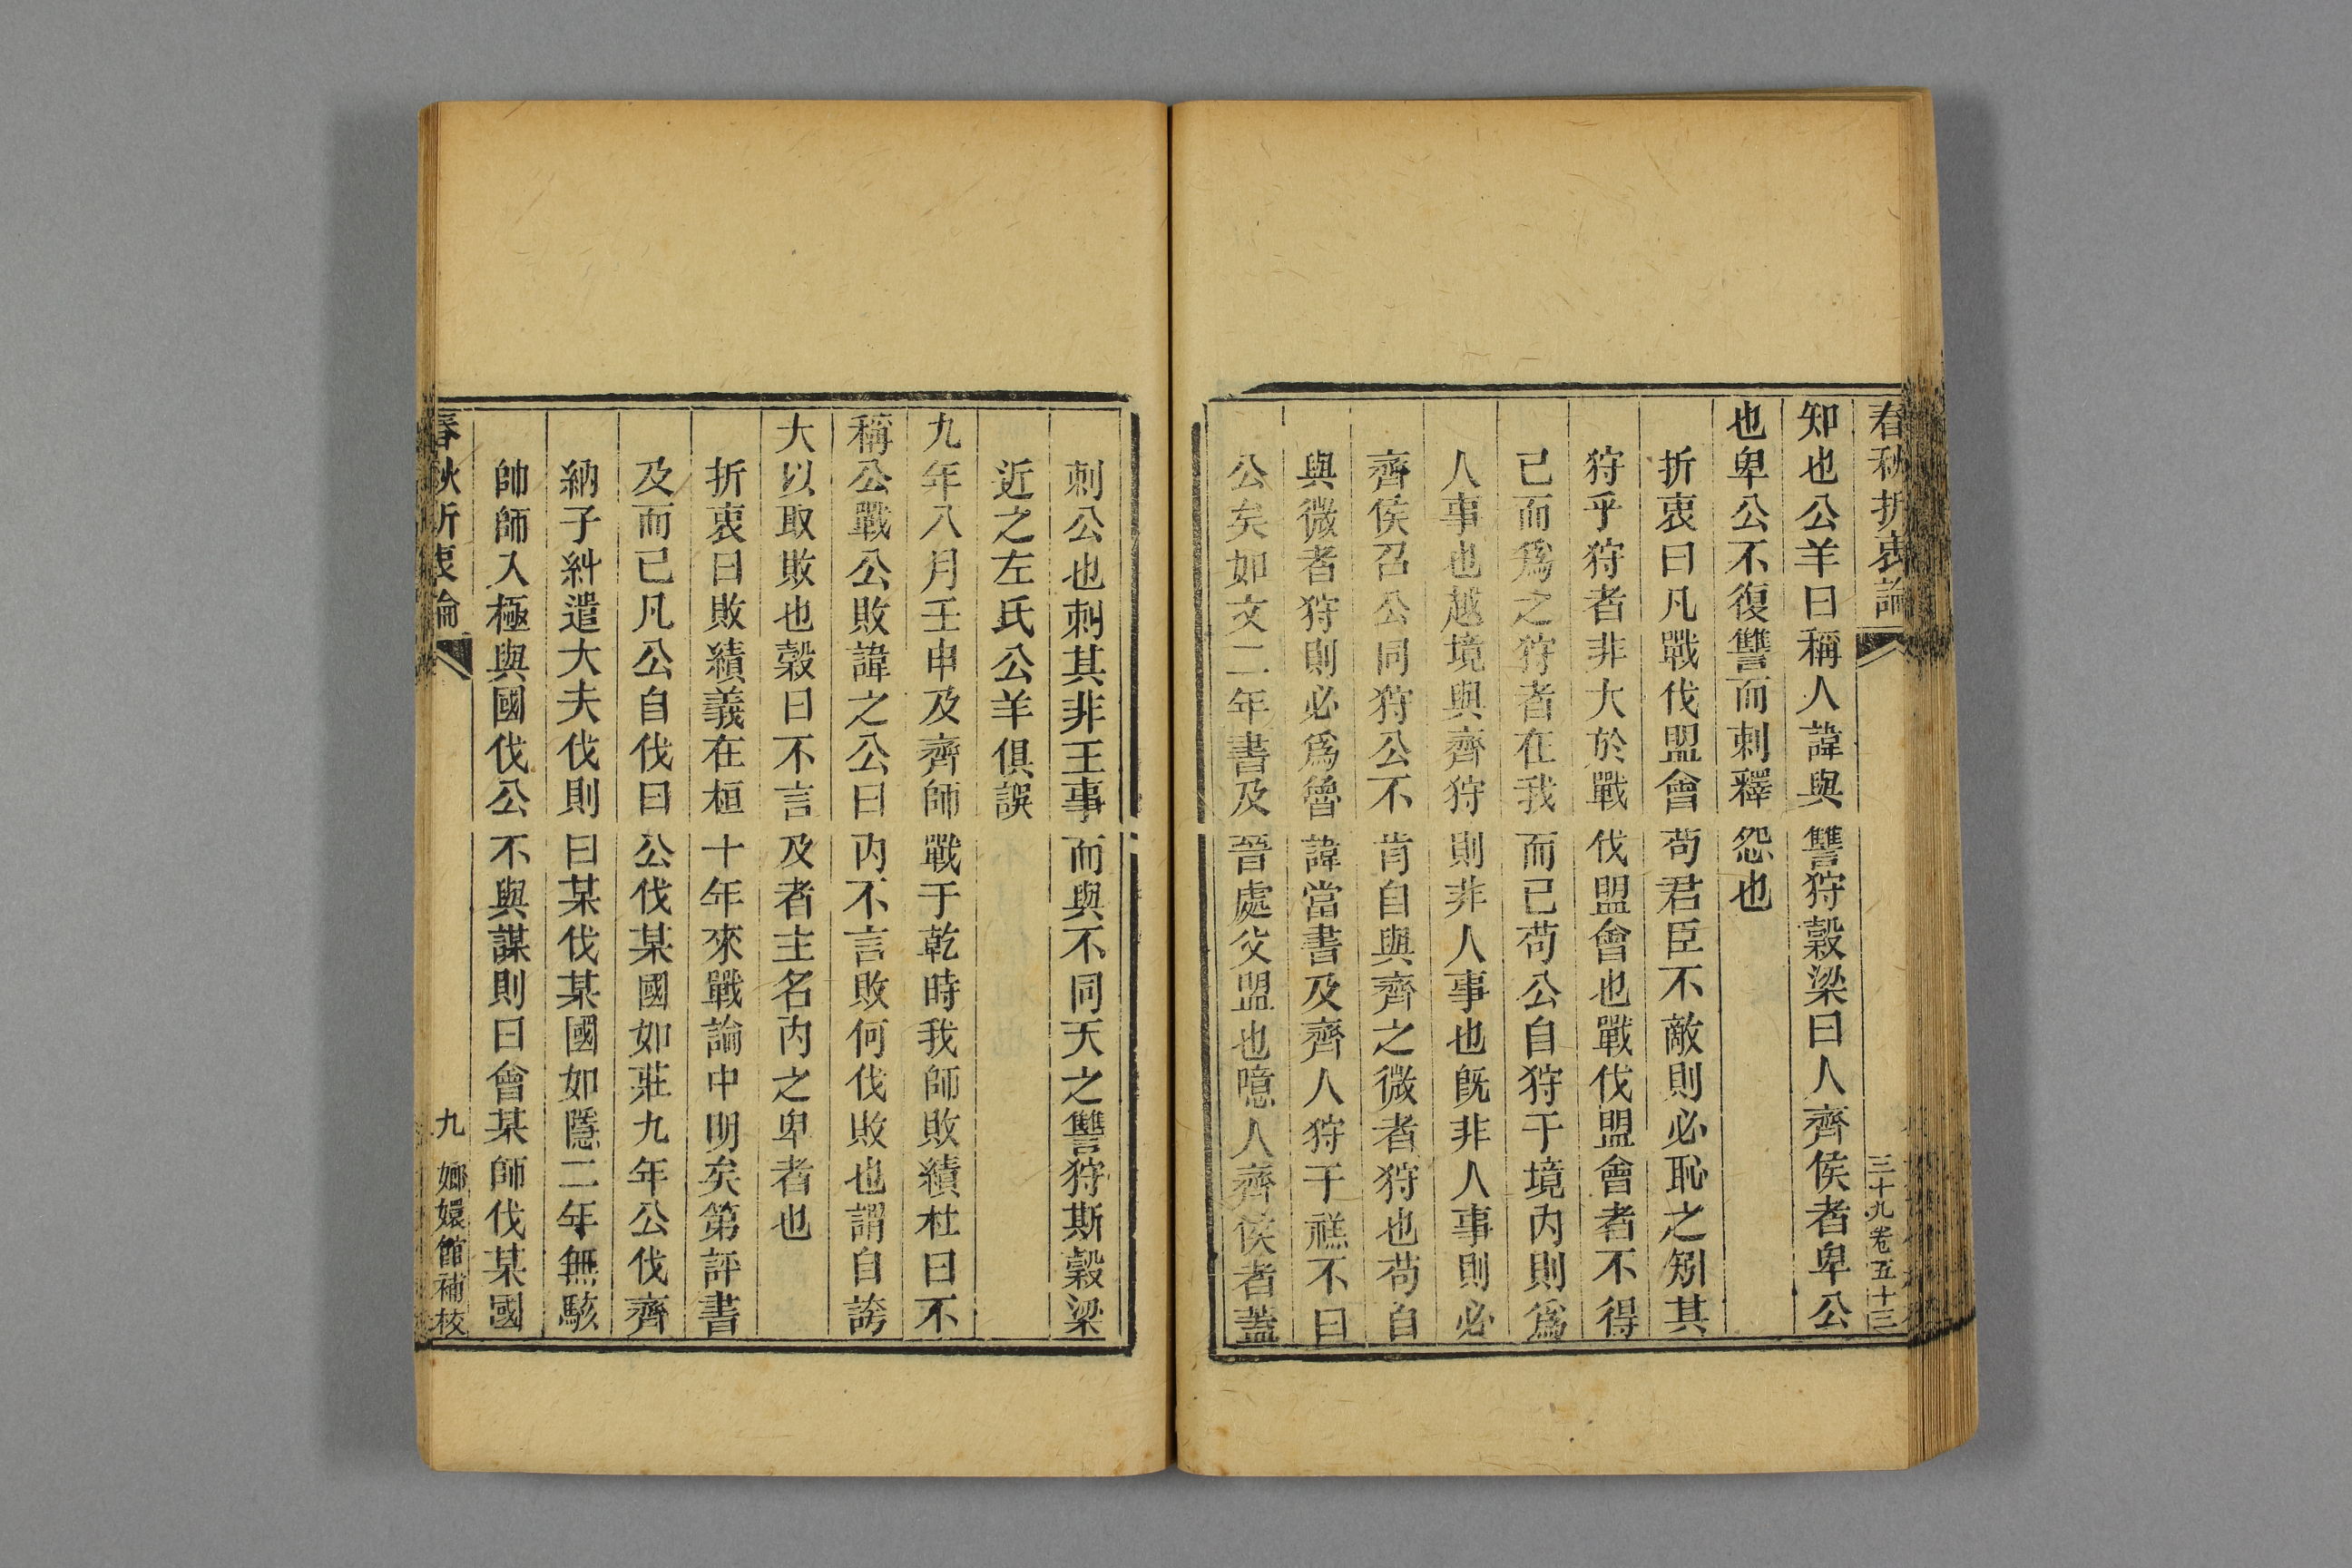 春秋折衷論 三十九卷五十三
知也公羊曰稱人諱與讐狩穀梁曰人齊侯者卑公
也卑公不復讐而刺釋怨也
折衷曰凡戰伐盟會苟君臣不敵則必恥之矧其
狩乎狩者非大於戰伐盟會也戰伐盟會者不得
已而爲之狩者在我而已苟公自狩于境內則爲
人事也越境與齊狩則非人事也旣非人事則必
齊侯召公同狩公不肯自與齊之微者狩也苟自
與微者狩則必爲魯諱當書及齊人狩于禚不曰
公矣如文二年書及晉處父盟也噫人齊侯者蓋
刺公也刺其非王事而與不同天之讐狩斯穀梁
近之左氏公羊俱誤
九年八月壬申及齊師戰于乾時我師敗績杜曰不
稱公戰公敗諱之公曰內不言敗何伐敗也謂自誇
大以取敗也穀曰不言及者主名內之卑者也
折衷曰敗績義在桓十年來戰論中明矣第評書
及而已凡公自伐曰公伐某國如莊九年公伐齊
納子糾遣大夫伐則曰某伐某國如隱二年無駭
帥師入極與國伐公不與謀則曰會某師伐某國
春秋折衷論 九 嫏嬛館補校